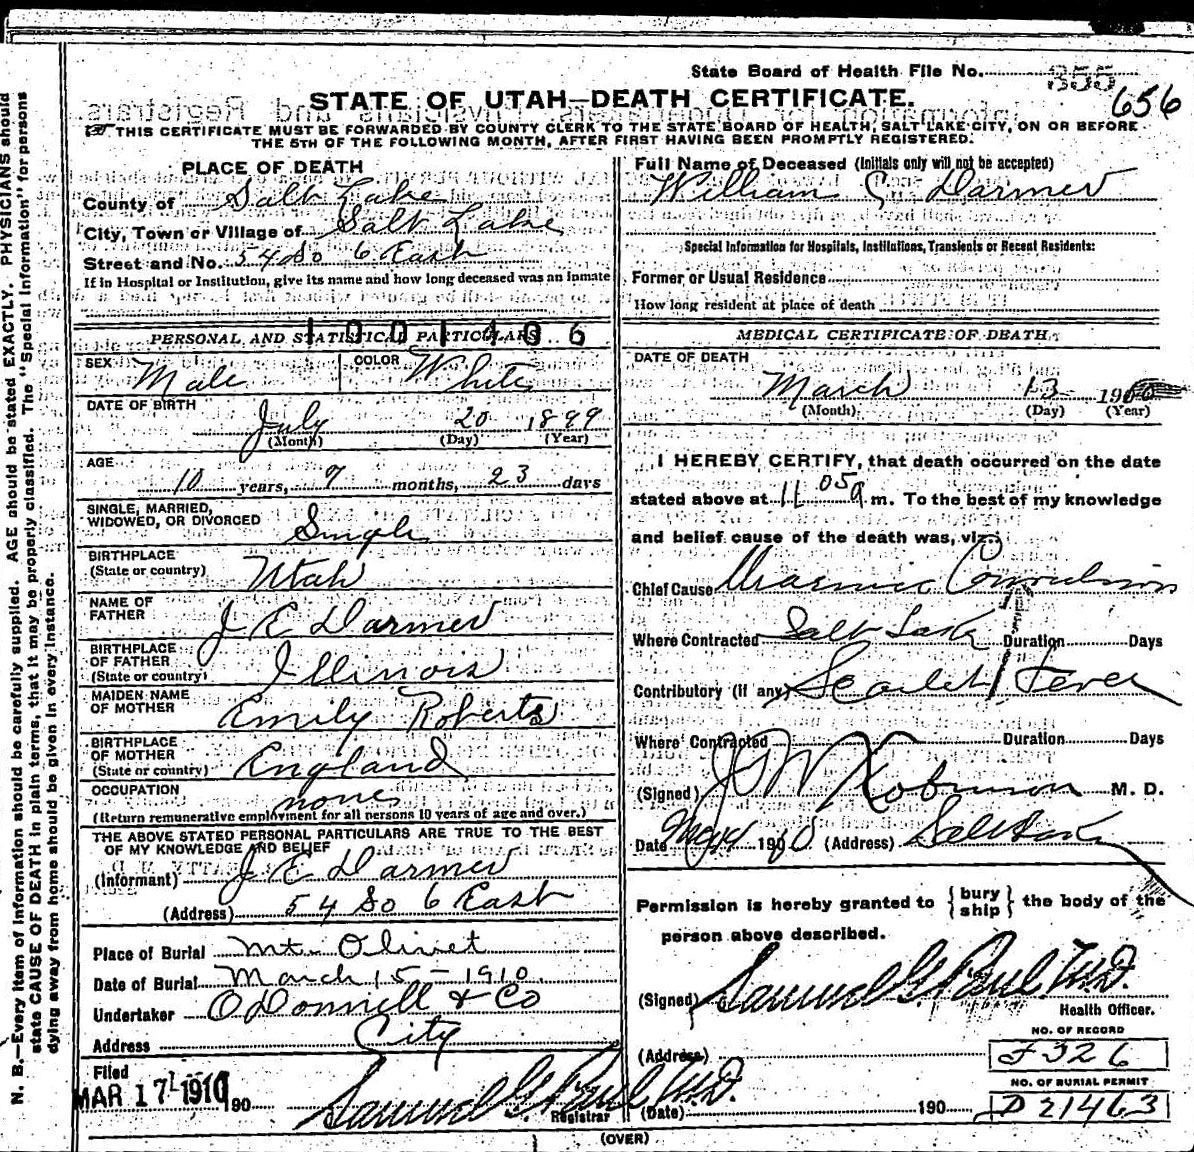 State Board of Health File No. 355
656
STATE OF UTAH—DEATH CERTIFICATE.
THIS CERTIFICATE MUST BE FORWARDED BY COUNTY CLERK TO THE STATE BOARD OF HEALTH, SALT LAKE CITY, ON OR BEFORE
THE 5TH OF THE FOLLOWING MONTH, AFTER FIRST HAVING BEEN PROMPTLY REGISTERED.
N. B.—Every item of information should be carefully supplied. AGE should be stated EXACTLY. PHYSICIANS should
state CAUSE OF DEATH in plain terms, that it may be properly classified. The "Special Information" for persons
dying away from home should be given in every instance.
PLACE OF DEATH
County of Salt Lake
City, Town or Village of Salt Lake
Street and No. 54 So 6 East
If in Hospital or Institution, give its name and how long deceased was an inmate
PERSONAL AND STATISTICAL PARTICULARS
SEX Male COLOR White
DATE OF BIRTH
July 20 1899
(Month) (Day) (Year)
AGE
10 years, 7 months, 23 days
SINGLE, MARRIED,
WIDOWED, OR DIVORCED Single
BIRTHPLACE
(State or country) Utah
NAME OF
FATHER J E Darmer
BIRTHPLACE
OF FATHER
(State or country) Illinois
MAIDEN NAME
OF MOTHER Emily Roberts
BIRTHPLACE
OF MOTHER
(State or country) England
OCCUPATION none
(Return remunerative employment for all persons 10 years of age and over.)
THE ABOVE STATED PERSONAL PARTICULARS ARE TRUE TO THE BEST
OF MY KNOWLEDGE AND BELIEF
(Informant) J E Darmer
(Address) 54 So 6 East
Place of Burial Mt. Olivet
Date of Burial March 15-1910
Undertaker O'Donnell & Co
Address City
Filed
MAR 17 1910 190
Samuel G. Paul M.D.
Registrar
Full Name of Deceased (Initials only will not be accepted)
William G Darmer
Special Information for Hospitals, Institutions, Transients or Recent Residents:
Former or Usual Residence
How long resident at place of death
MEDICAL CERTIFICATE OF DEATH
DATE OF DEATH
March 13 19
(Month) (Day) (Year)
I HEREBY CERTIFY, that death occurred on the date
stated above at 11 05 a m. To the best of my knowledge
and belief cause of the death was, viz.:
Chief Cause Uraemic Convulsions
Where Contracted Salt Lake Duration Days
Contributory (if any) Scarlet Fever
Where Contracted Duration Days
(Signed) J W Robinson M. D.
Date 190 (Address) Salt Lake
Permission is hereby granted to { bury ship } the body of the
person above described.
(Signed) Samuel G. Paul M.D.
Health Officer.
NO. OF RECORD
(Address) J 326
NO. OF BURIAL PERMIT
(Date) 190 D 21463
(OVER)